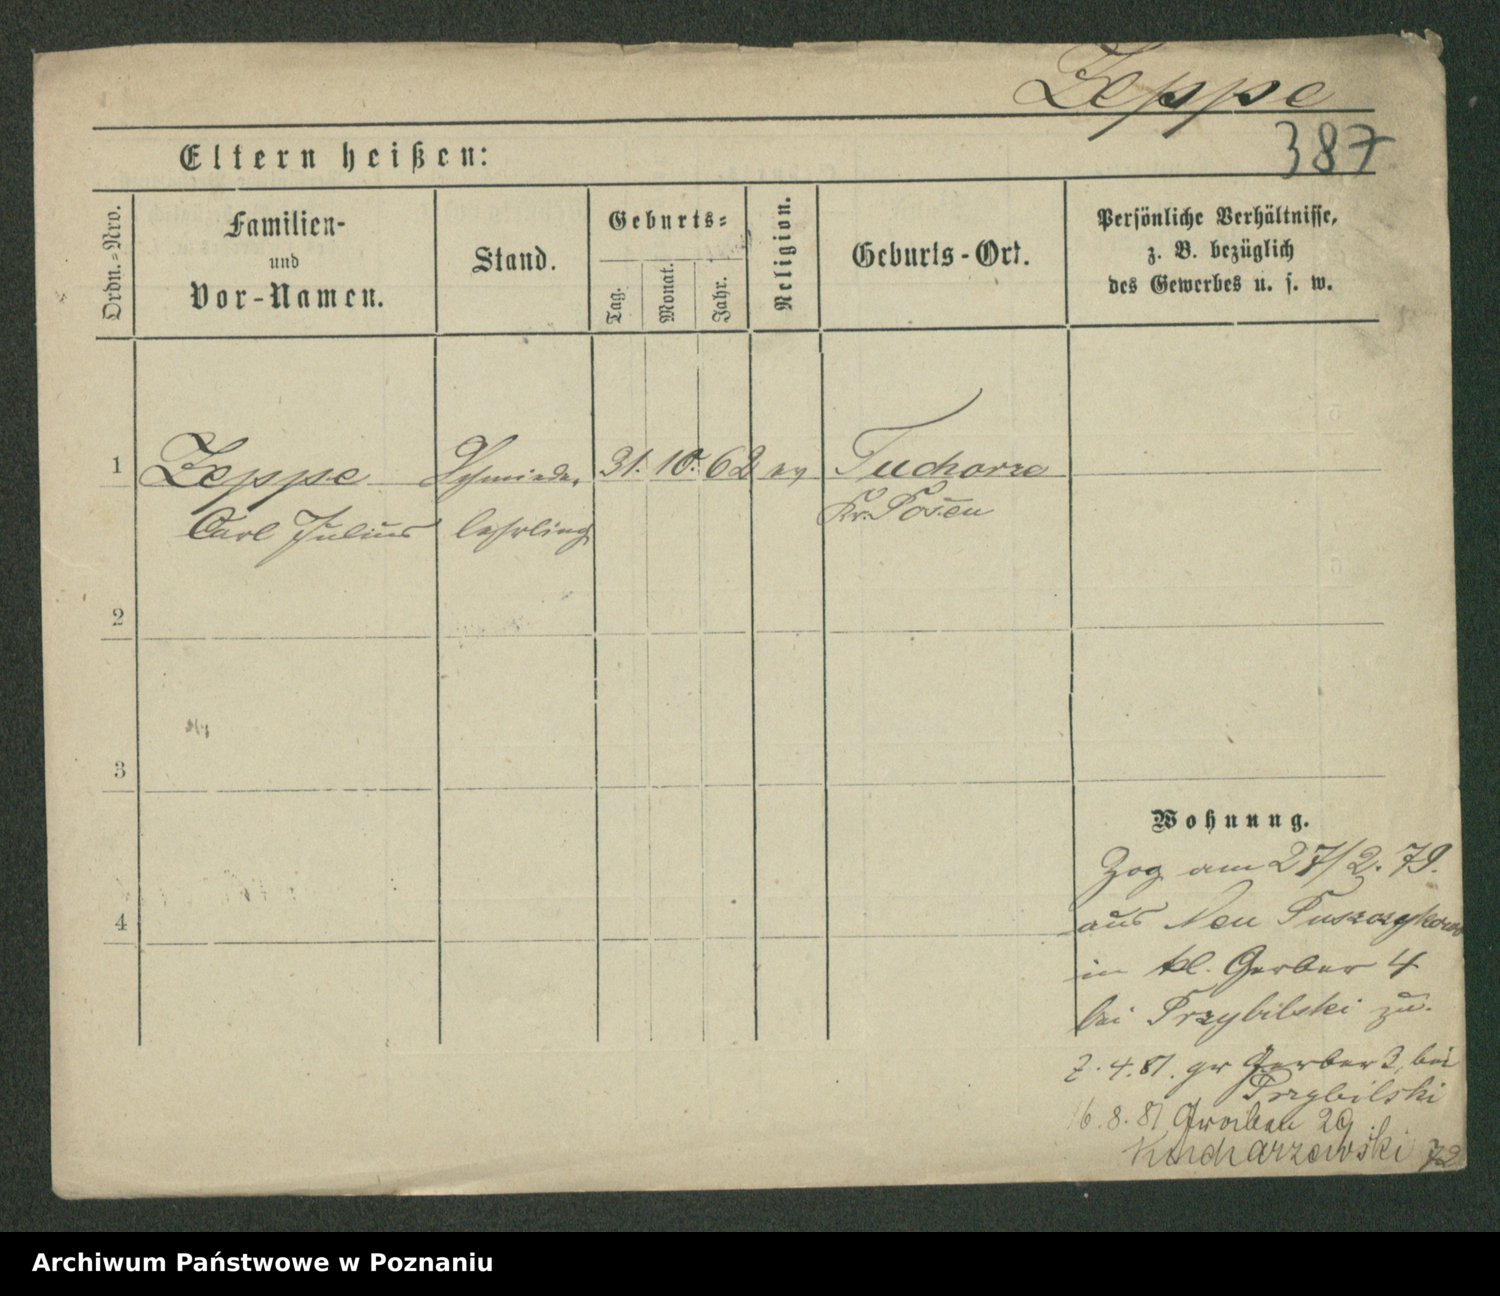 Zeppe
387
Eltern heißen:
Ordn.-Nro.
Familien-
und
Vor-Namen.
Stand.
Geburts-
Tag.
Monat.
Jahr.
Religion.
Geburts-Ort.
Persönliche Verhältnisse,
z. B. bezüglich
des Gewerbes u. s. w.
1 Zeppe Schmiede- 31. 10. 62 ev Tuchorze
Carl Julius lehrling Kr. Posen
2
3
4
Wohnung.
Zog am 27/2. 79.
aus Neu
in kl. Gerber 4
bei Przybilski zu.
2. 4. 81. gr Gerber 3, bei
Przybilski
16. 8. 81 Graben 29
72
Archiwum Państwowe w Poznaniu